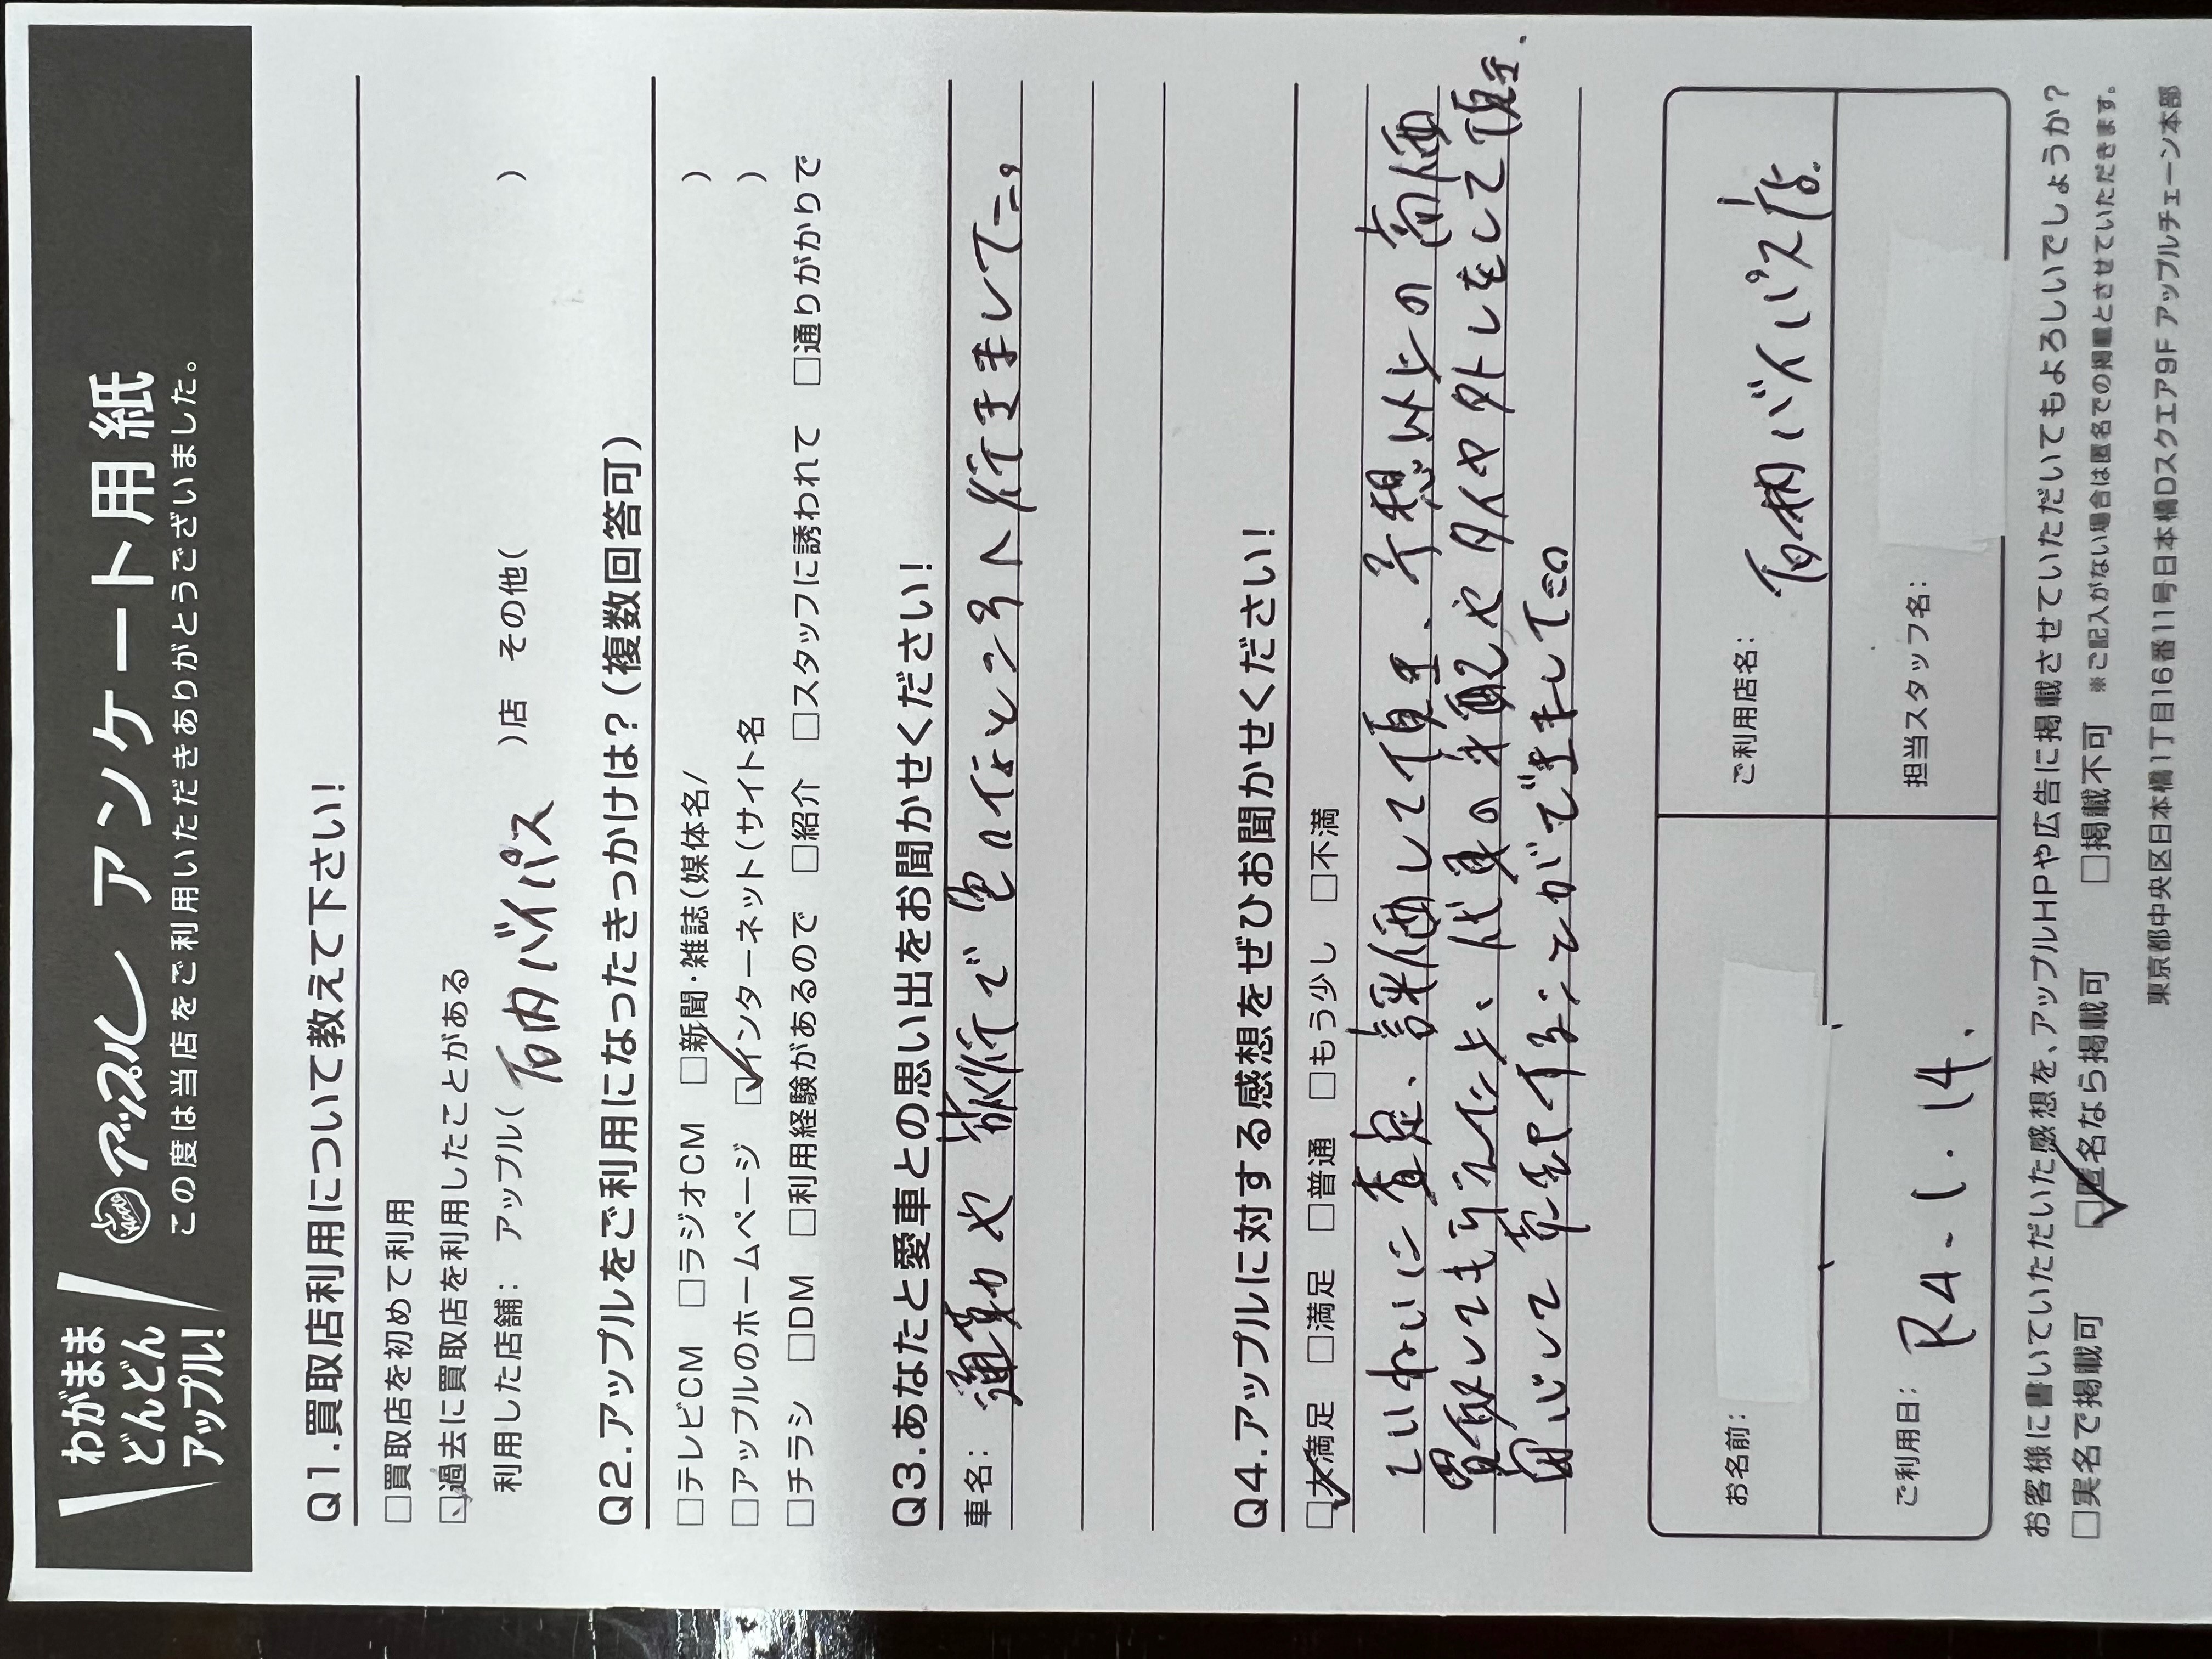 わがまま
どんどん
アップル!
アップル アンケート用紙
この度は当店をご利用いただきありがとうございました。
Q1.買取店利用について教えて下さい!
□買取店を初めて利用
☑過去に買取店を利用したことがある
利用した店舗: アップル( 石内バイパス )店 その他( )
Q2.アップルをご利用になったきっかけは?(複数回答可)
□テレビCM □ラジオCM □新聞・雑誌(媒体名/ )
□アップルのホームページ ☑インターネット(サイト名 )
□チラシ □DM □利用経験があるので □紹介 □スタッフに誘われて □通りがかりで
Q3.あなたと愛車との思い出をお聞かせください!
車名: 通勤や旅行で色々なところへ行きました。
Q4.アップルに対する感想をぜひお聞かせください!
☑大満足 □満足 □普通 □もう少し □不満
ていねいに査定、評価して頂き、予想以上の高価
買取してもらえた上、代車の手配やタイヤ外しをして頂き、
安心して売却することができました。
お名前:
ご利用店名: 石内バイパス店.
ご利用日: R4.1.14.
担当スタッフ名:
お客様に書いていただいた感想を、アップルHPや広告に掲載させていただいてもよろしいでしょうか?
□実名で掲載可 ☑匿名なら掲載可 □掲載不可 ※ご記入がない場合は匿名での掲載とさせていただきます。
東京都中央区日本橋1丁目16番11号日本橋Dスクエア9F アップルチェーン本部